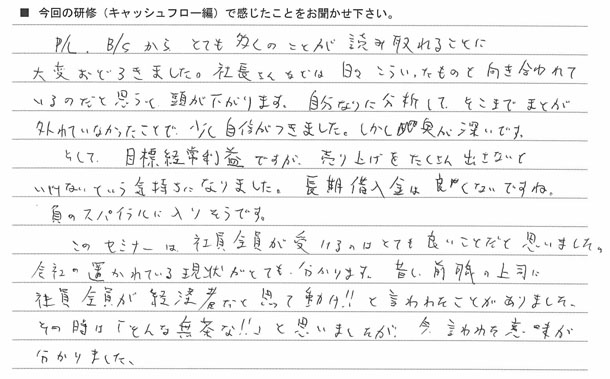 ■ 今回の研修（キャッシュフロー編）で感じたことをお聞かせ下さい。
P/L、B/Sから、とても多くのことが読み取れることに
大変おどろきました。社長さんなどは日々こういったものと向き合われて
いるのだと思うと頭が下がります。自分なりに分析して、そこまでまとが
外れていなかったことで、少し自信がつきました。しかし奥が深いです。
そして、目標経常利益ですが、売り上げをたくさん出さないと
いけないという気持ちになりました。長期借入金は良くないですね。
負のスパイラルに入りそうです。
このセミナーは、社員全員が受けるのはとても良いことだと思いました。
会社の置かれている現状がとても分かります。昔し、前職の上司に
社員全員が経営者だと思って動け!!と言われたことがありました、
その時は「そんな無茶な!!」と思いましたが、今、言われた意味が
分かりました、